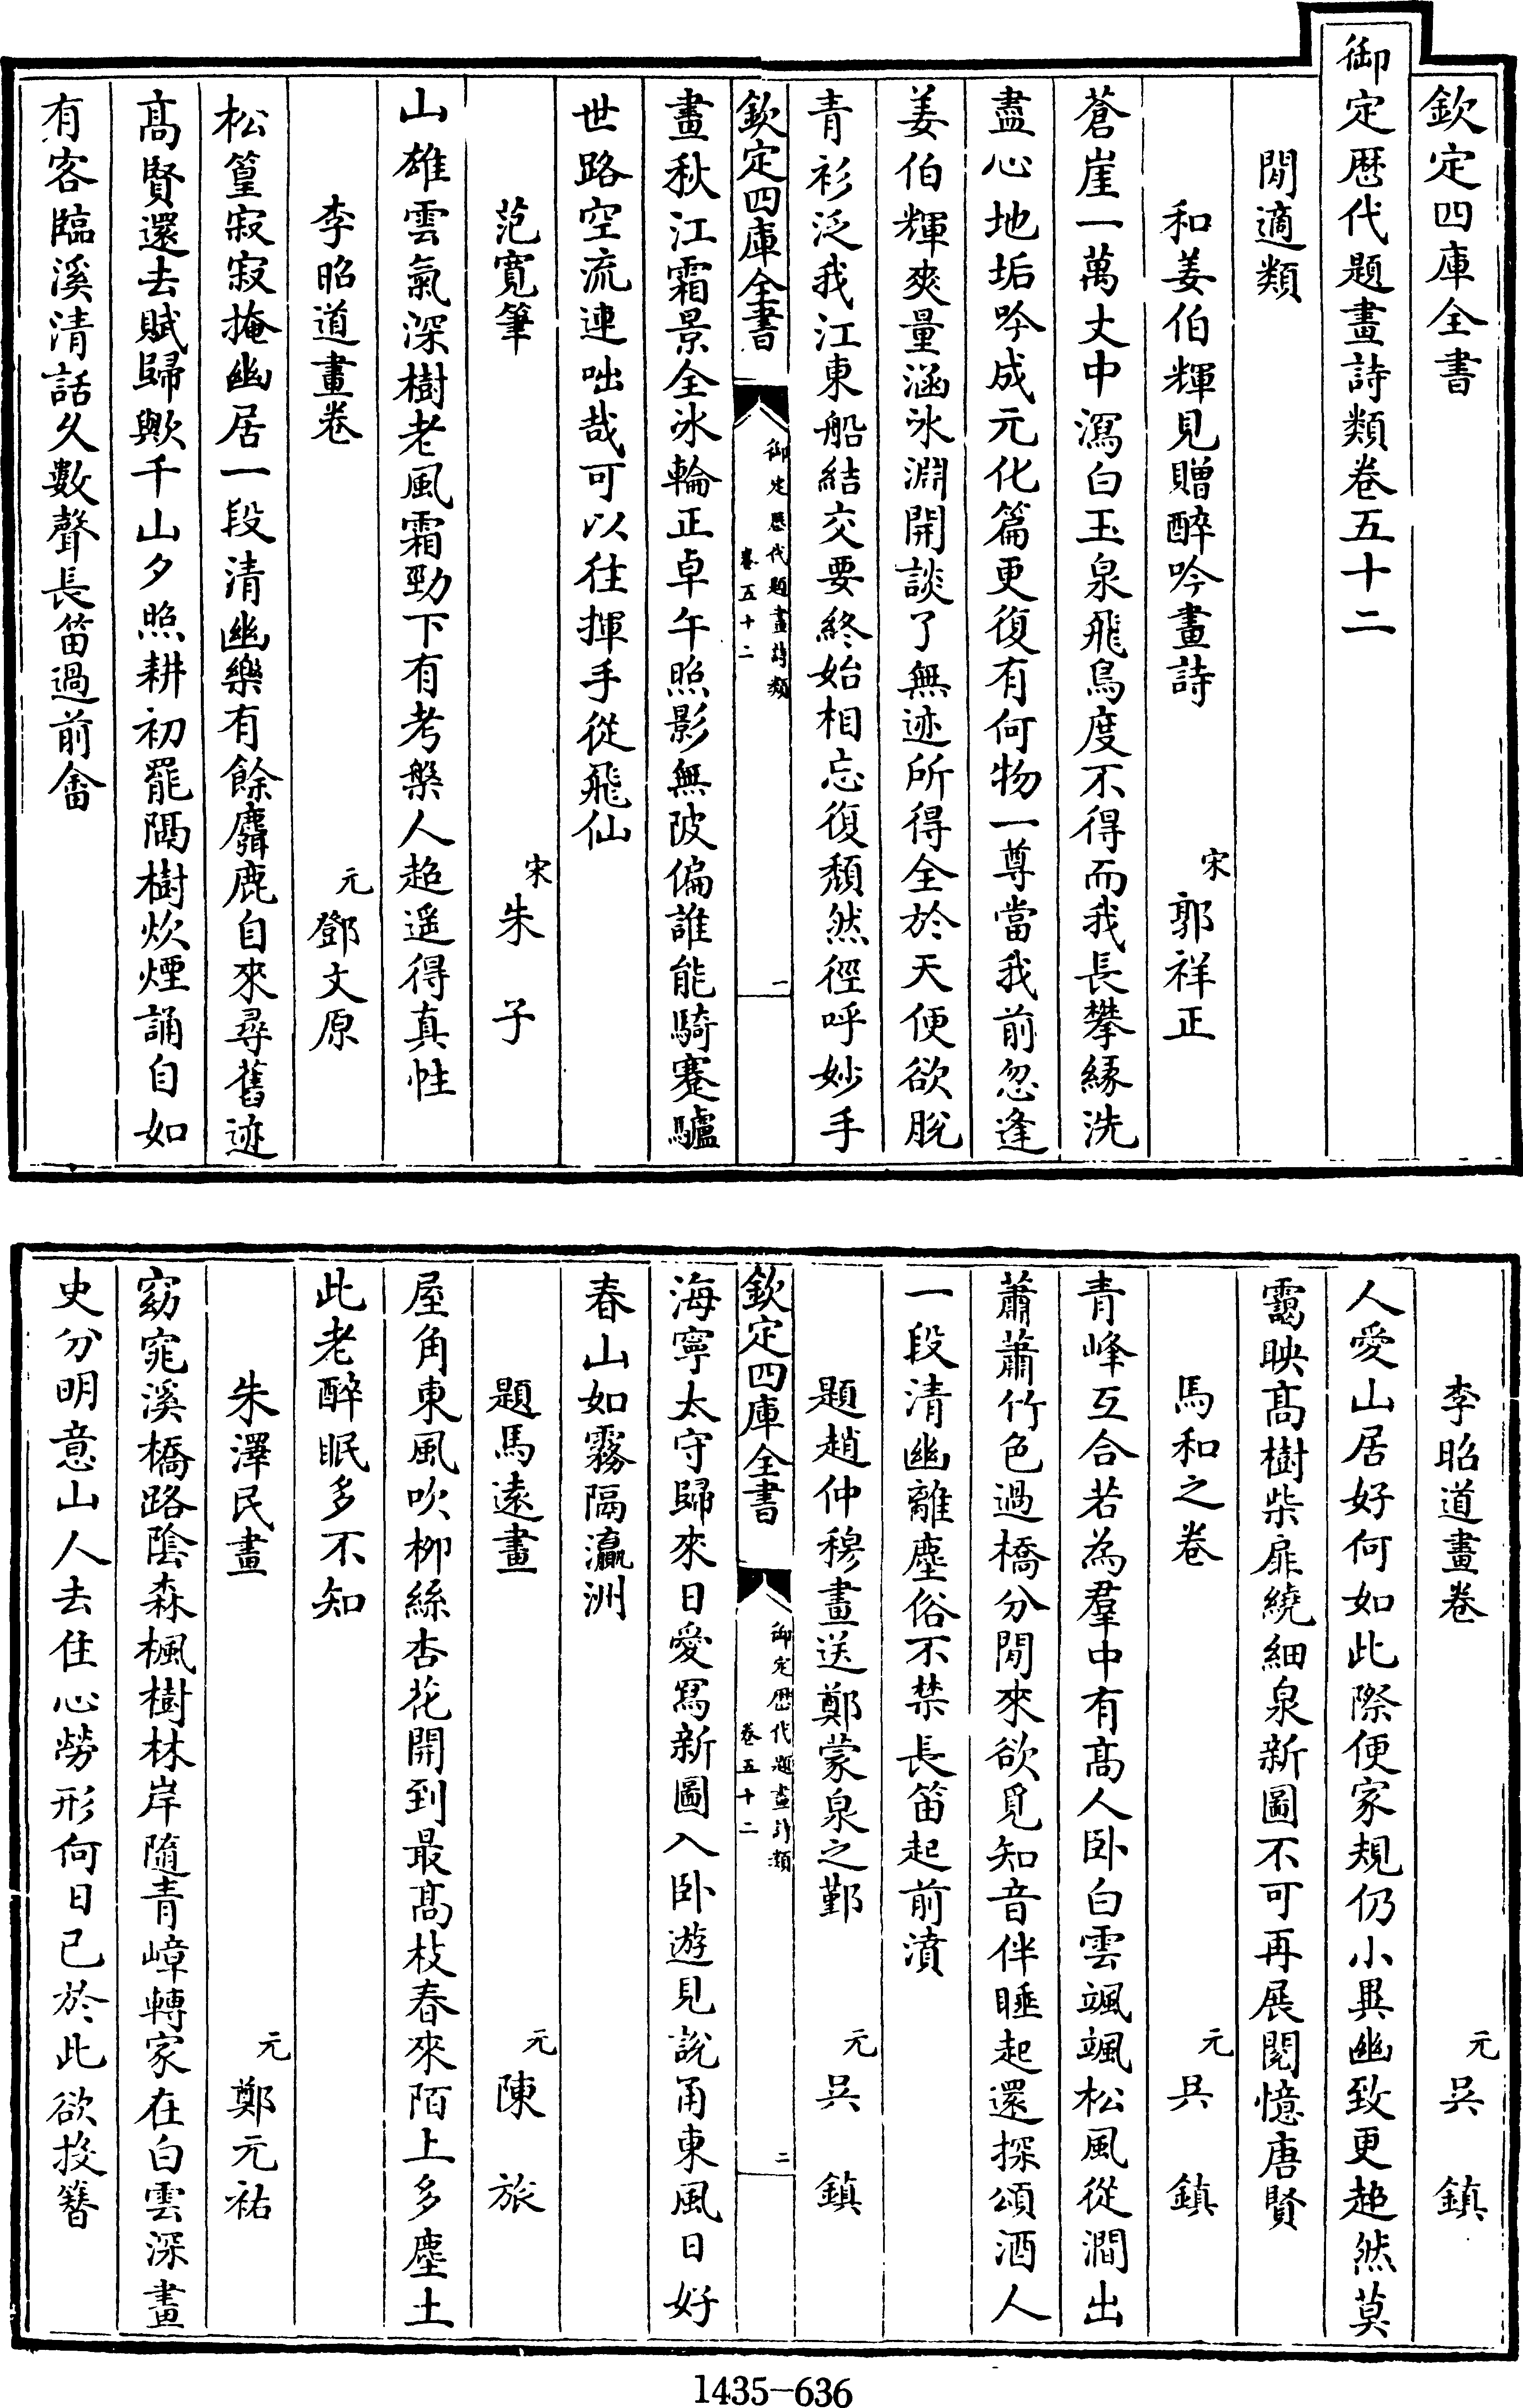 欽定四庫全書
御定歴代題畫詩類卷五十二
閒適類
和姜伯輝見贈醉吟畫詩
宋郭祥正
蒼崖一萬丈中瀉白玉泉飛鳥度不得而我長攀緣洗
盡心地垢吟成元化篇更復有何物一尊當我前忽逢
姜伯輝爽量涵氷淵開談了無迹所得全於天便欲脫
青衫泛我江東船結交要終始相忘復頽然徑呼妙手
欽定四庫全書
御定歴代題畫詩類
卷五十二
一
畫秋江霜景全冰輪正卓午照影無陂偏誰能騎蹇驢
世路空流連咄哉可以往揮手從飛仙
范寬筆
宋朱子
山雄雲氣深樹老風霜勁下有考槃人超遥得真性
李昭道畫卷
元鄧文原
松篁寂寂掩幽居一段清幽樂有餘麛鹿自來尋舊迹
髙賢還去賦歸歟千山夕照耕初罷隔樹炊煙誦自如
有客臨溪清話久數聲長笛過前畬
李昭道畫卷
元吳鎮
人愛山居好何如此際便家規仍小異幽致更超然莫
靄映髙樹柴扉繞細泉新圖不可再展閱憶唐賢
馬和之卷
元吳鎮
青峰互合若為羣中有髙人卧白雲颯颯松風從澗出
蕭蕭竹色過橋分閒來欲覓知音伴睡起還探頌酒人
一段清幽離塵俗不禁長笛起前濆
題趙仲穆畫送鄭蒙泉之鄞
元吳鎮
欽定四庫全書
御定歴代題畫詩類
卷五十二
二
海寧太守歸來日愛寫新圖入卧遊見說甬東風日好
春山如霧隔瀛洲
題馬遠畫
元陳旅
屋角東風吹柳絲杏花開到最髙枝春來陌上多塵土
此老醉眠多不知
朱澤民畫
元鄭元祐
窈窕溪橋路陰森楓樹林岸隨青嶂轉家在白雲深畫
史分明意山人去住心勞形何日已於此欲投簪
1435-636